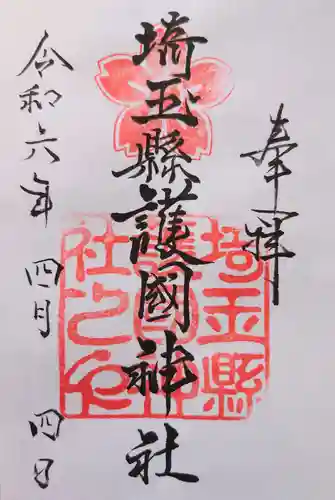 奉拝
埼玉縣護國神社
令和六年四月四日
埼玉縣
護國神
社之印